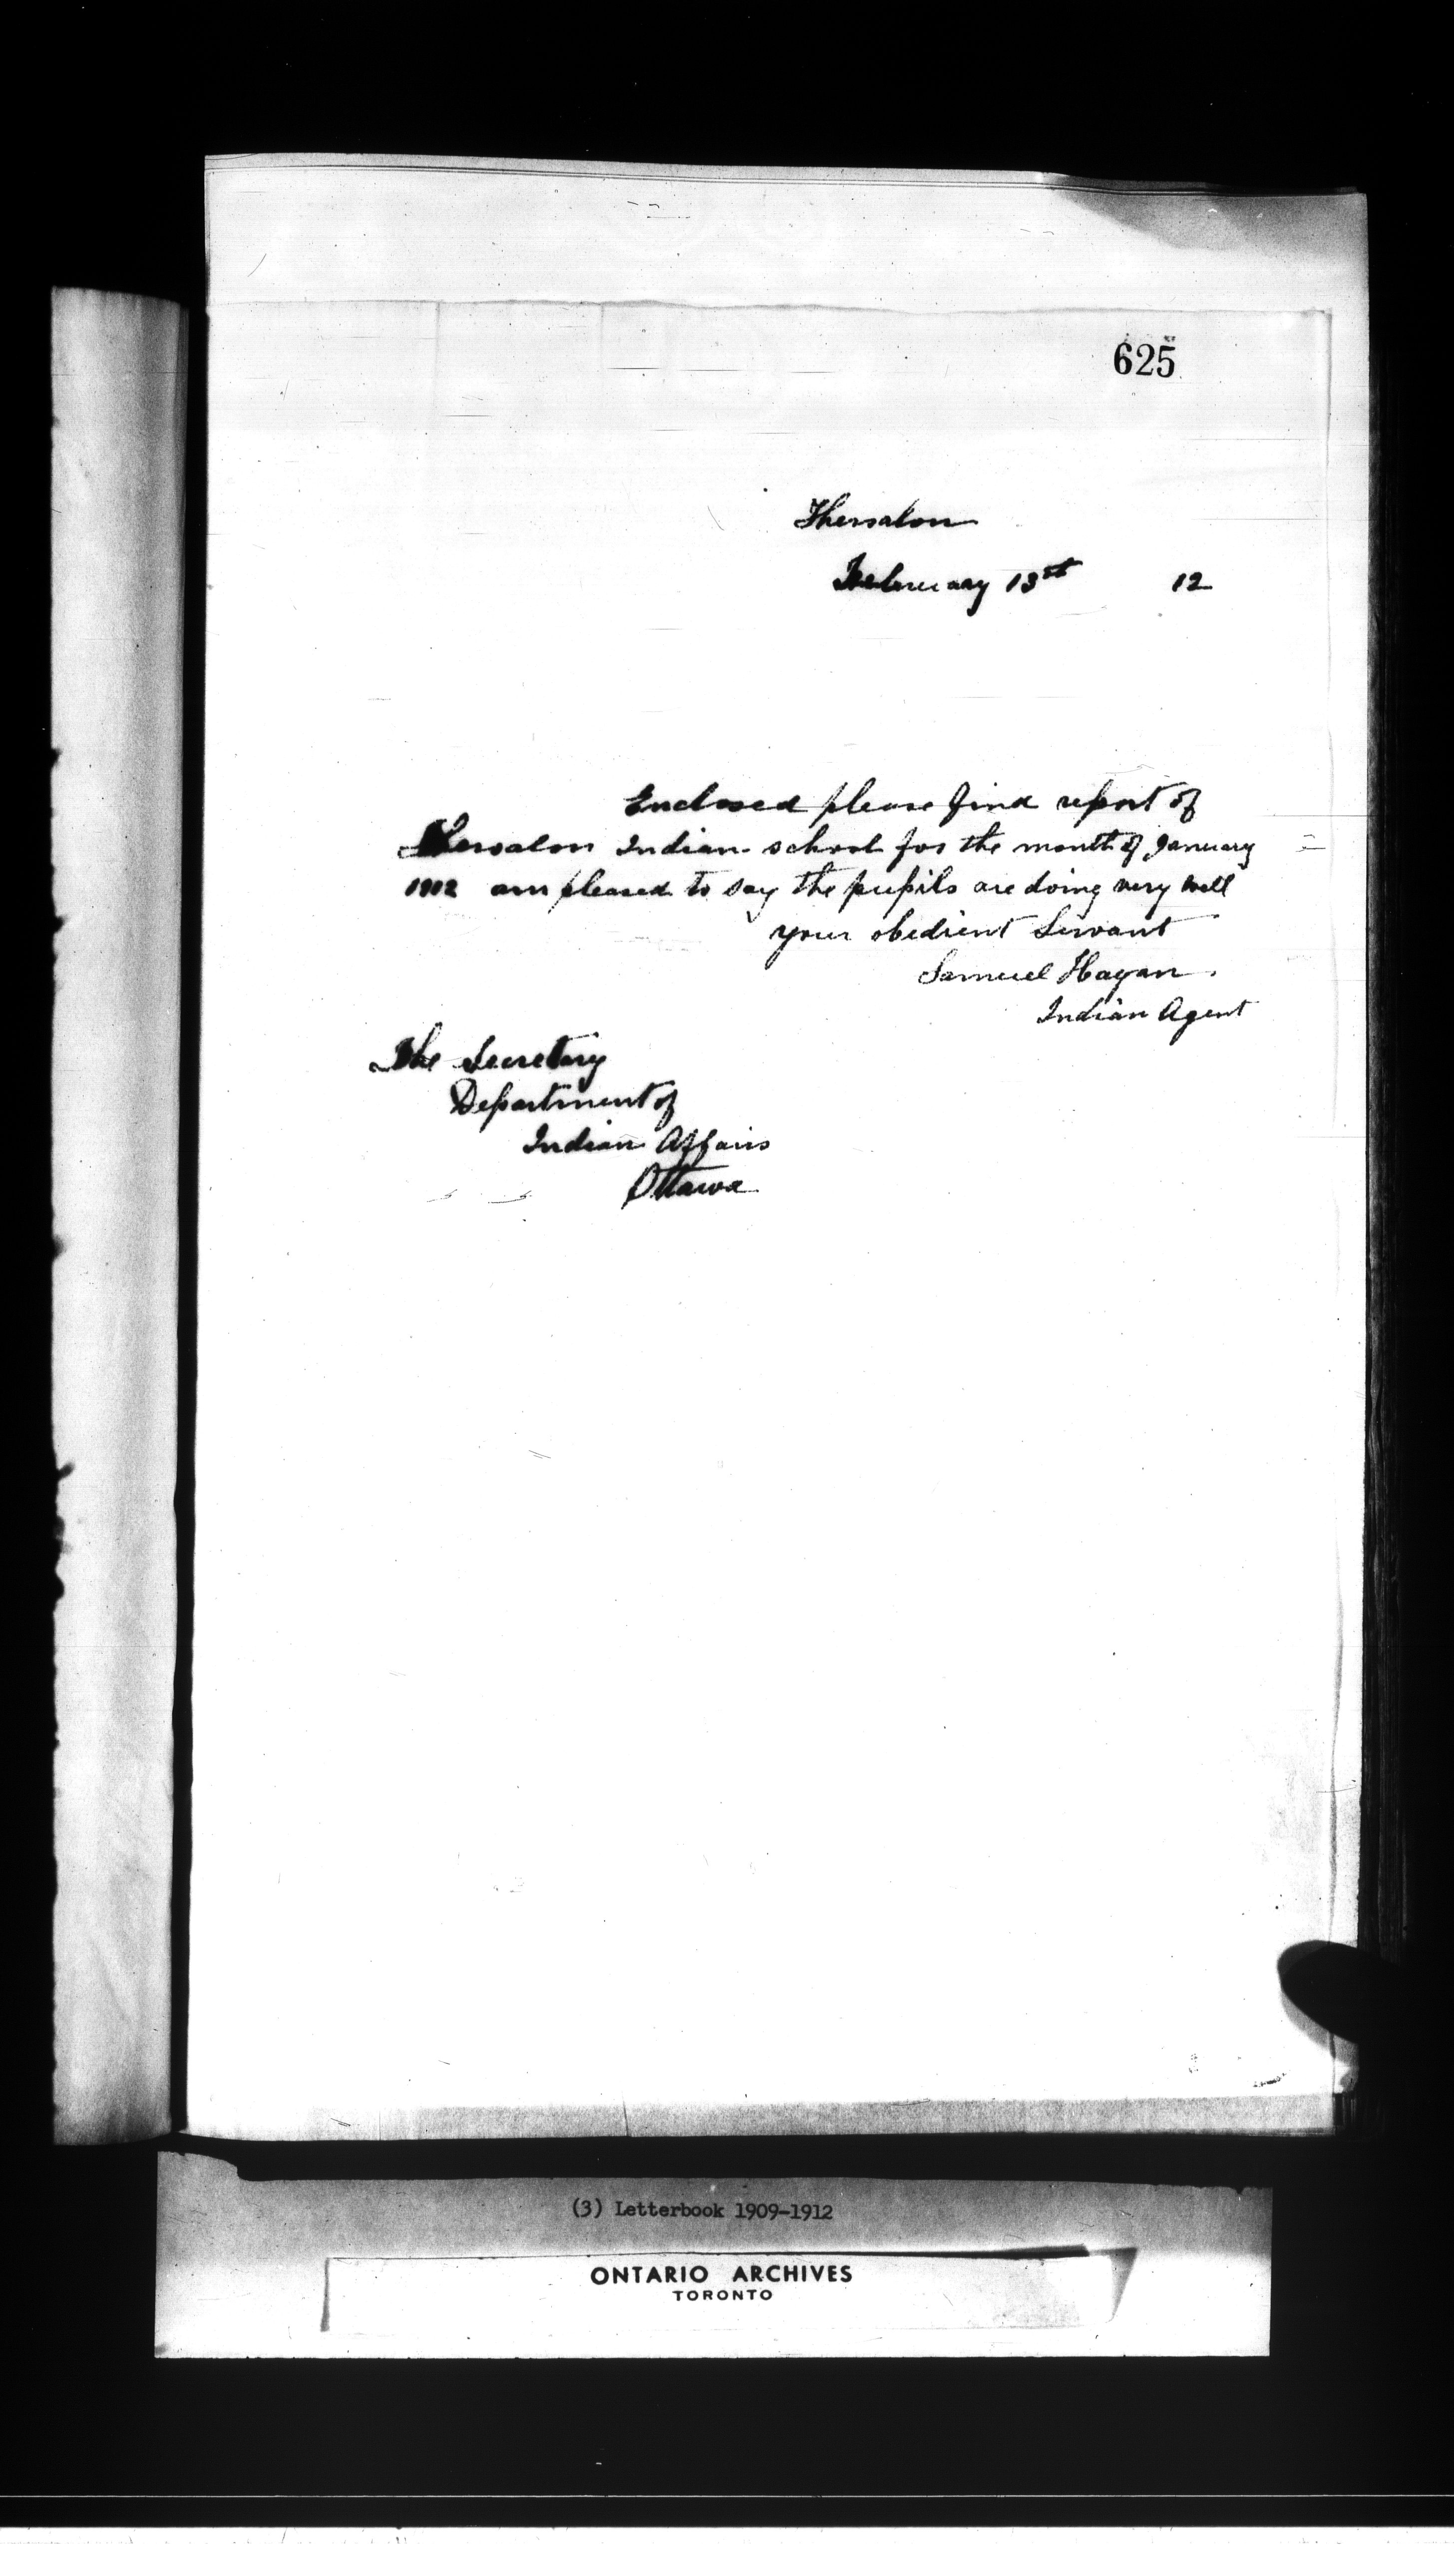 625
Thessalon
February 13st 12
Enclosed please find report of
Thessalon Indian school for the month of January
1912 am pleased to say the pupils are doing very well
your obedient Servant
Samuel Hagan.
Indian Agent
The Secretary
Department of
Indian Affairs
Ottawa
(3) Letterbook 1909-1912
ONTARIO ARCHIVES
TORONTO